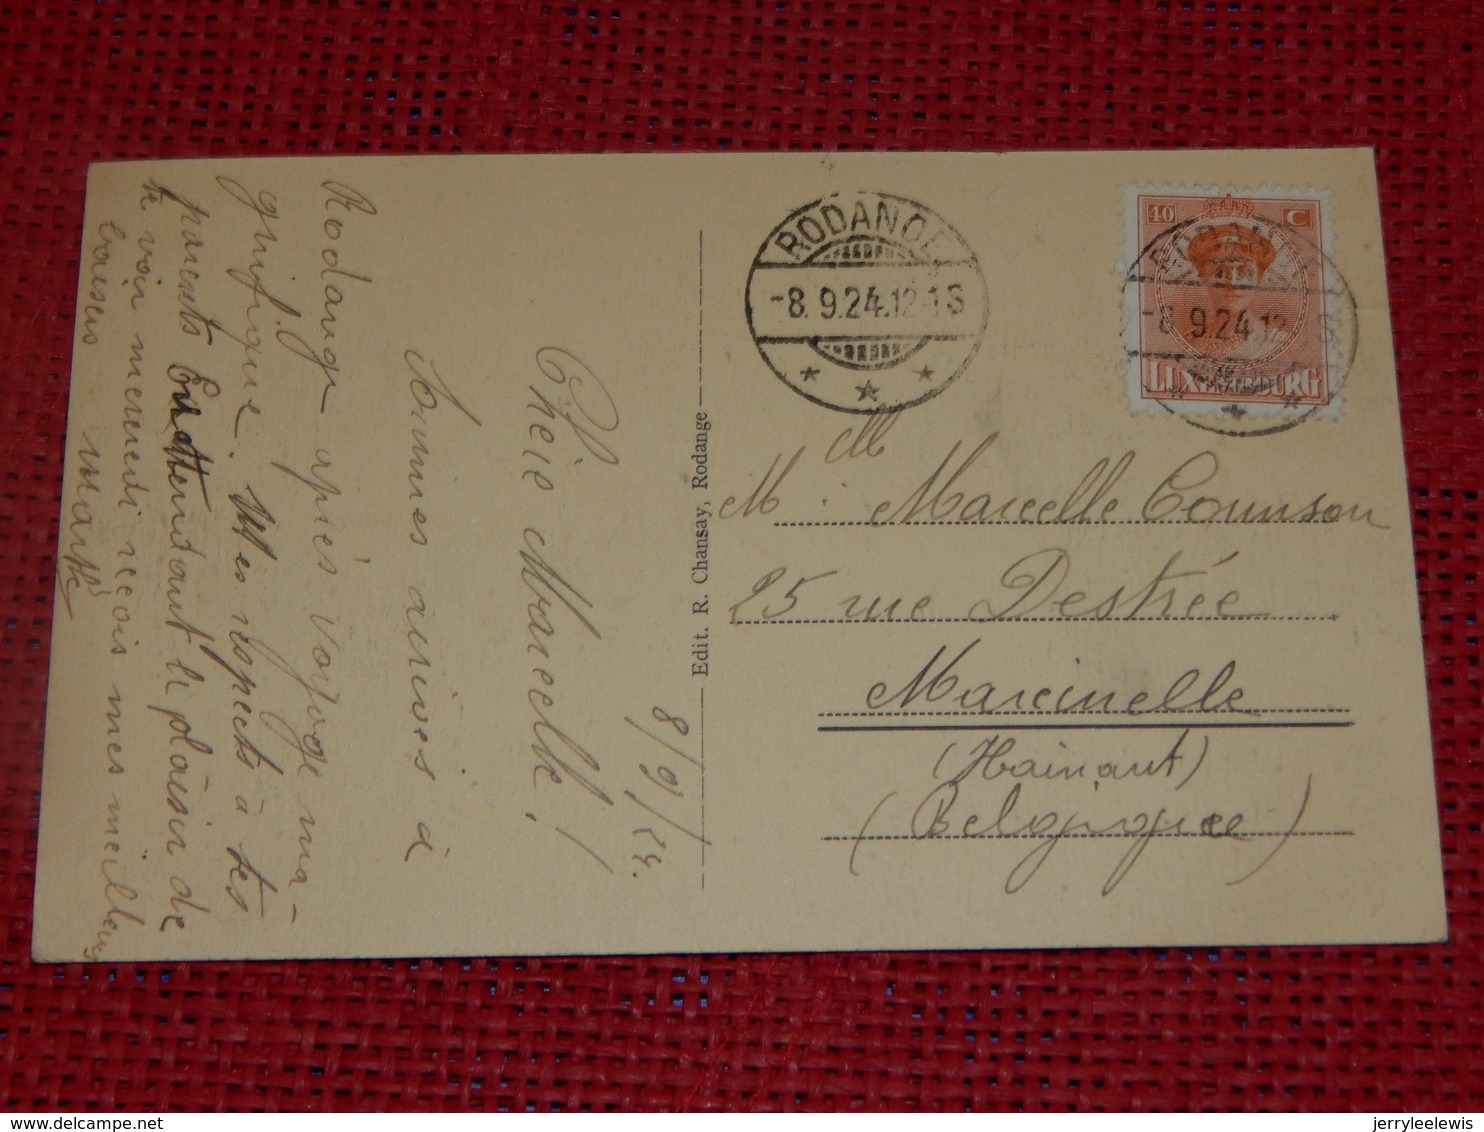 8/9/24.
Chère Marcelle !
Sommes arrivés à
Rodange après voyage ma-
gnifique. Mes respects à tes
parents En attendant le plaisir de
te voir mercredi reçois mes meilleurs
baisers Marthe
Edit. R. Chansay, Rodange
RODANGE
-8.9.24.12-1S
40 C
LUXEMBOURG
RODANGE
-8.9.24.12-1S
M
M. Marcelle Counson
25 rue Destrée
Marcinelle
(Hainaut)
(Belgique)
delcampe.net
jerryleelewis